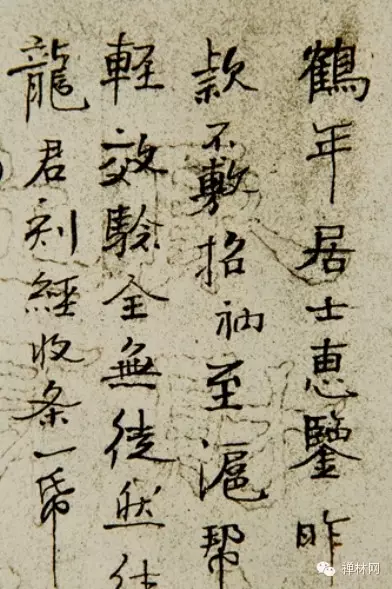 鶴年居士惠鑒昨
款不敷招衲至滬幫
軽效驗全無徒然往
龍君刻經收条一幣
禅林网